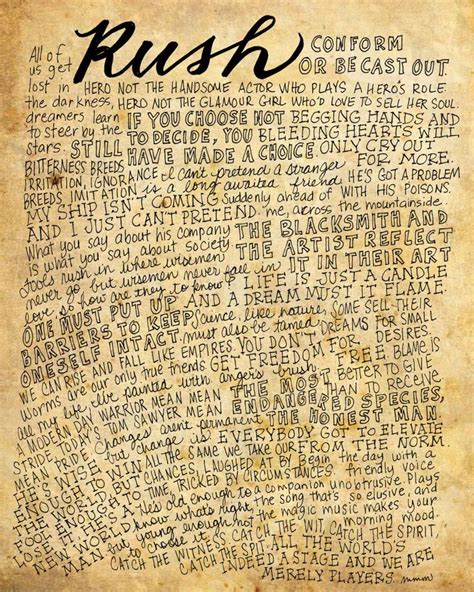 Rush
CONFORM
OR BE CAST OUT.
All of
us get
lost in HERO NOT THE HANDSOME ACTOR WHO PLAYS A HERO'S ROLE
the darkness, HERO NOT THE GLAMOUR GIRL WHO'D LOVE TO SELL HER SOUL.
dreamers learn IF YOU CHOOSE NOT BEGGING HANDS AND
to steer by the TO DECIDE, YOU BLEEDING HEARTS WILL
stars. STILL HAVE MADE A CHOICE. ONLY CRY OUT
BITTERNESS BREEDS FOR MORE.
IRRITATION, IGNORANCE I can't pretend a stranger HE'S GOT A PROBLEM
BREEDS IMITATION is a long awaited friend. WITH HIS POISONS.
MY SHIP ISN'T COMING Suddenly ahead of me, across the mountainside.
AND I JUST CAN'T PRETEND. THE BLACKSMITH AND
What you say about his company THE ARTIST REFLECT
is what you say about society IT IN THEIR ART
fools rush in where wisemen
never go but wisemen never fall in
love so how are they to know? LIFE IS JUST A CANDLE
ONE MUST PUT UP AND A DREAM MUST IT FLAME.
BARRIERS TO KEEP Science, like nature, SOME SELL THEIR
ONESELF INTACT. must also be tamed DREAMS FOR SMALL
WE CAN RISE AND FALL LIKE EMPIRES. YOU DON'T DESIRES.
Worms are our only true friends GET FREEDOM FREE. BLAME IS
all my life, live painted with angers brush. BETTER TO GIVE
A MODERN DAY WARRIOR MEAN MEAN THE MOST THAN TO RECEIVE
STRIDE, TODAY'S TOM SAWYER MEAN ENDANGERED SPECIES,
MEAN PRIDE. Changes aren't permanent THE HONEST MAN
but change is EVERYBODY GOT TO ELEVATE
HE'S WISE ALL THE SAME WE TAKE OUR FROM THE NORM.
ENOUGH TO WIN CHANCES, LAUGHED AT BY Begin the day with a
THE WORLD, BUT TIME, TRICKED BY CIRCUMSTANCES. friendly voice
FOOL ENOUGH TO a companion unobtrusive. Plays
LOSE IT. HE'S A He's old enough to the song that's so elusive, and
NEW WORLD know what's right, the magic music makes your
MAN but young enough not morning mood.
to choose it. CATCH THE WIT, CATCH THE SPIRIT,
CATCH THE WITNESS CATCH THE SPIT, ALL THE WORLD'S
INDEED A STAGE AND WE ARE
MERELY PLAYERS.